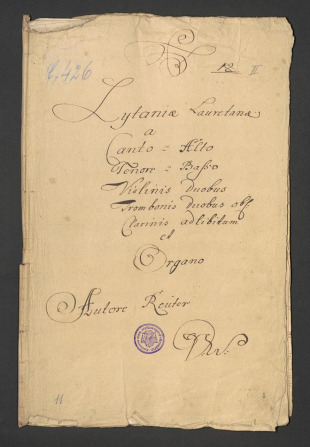 C, 426
12 II
Lytaniæ Lauretanæ
a
Canto = Alto
Tenore = Basso
Violinis Duobus
Trombonis Duobus obl
Clarinis adlibitum
et
Organo
Autore Reüter
11